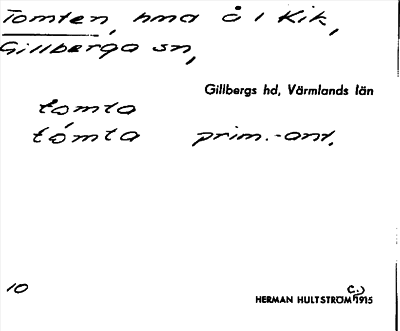 Tomten, hmd å 1 Kik,
Gillberga sn,
Gillbergs hd, Värmlands län
tomta
tómta prim.-ant.
10
HERMAN HULTSTRÖM (C.) 1915